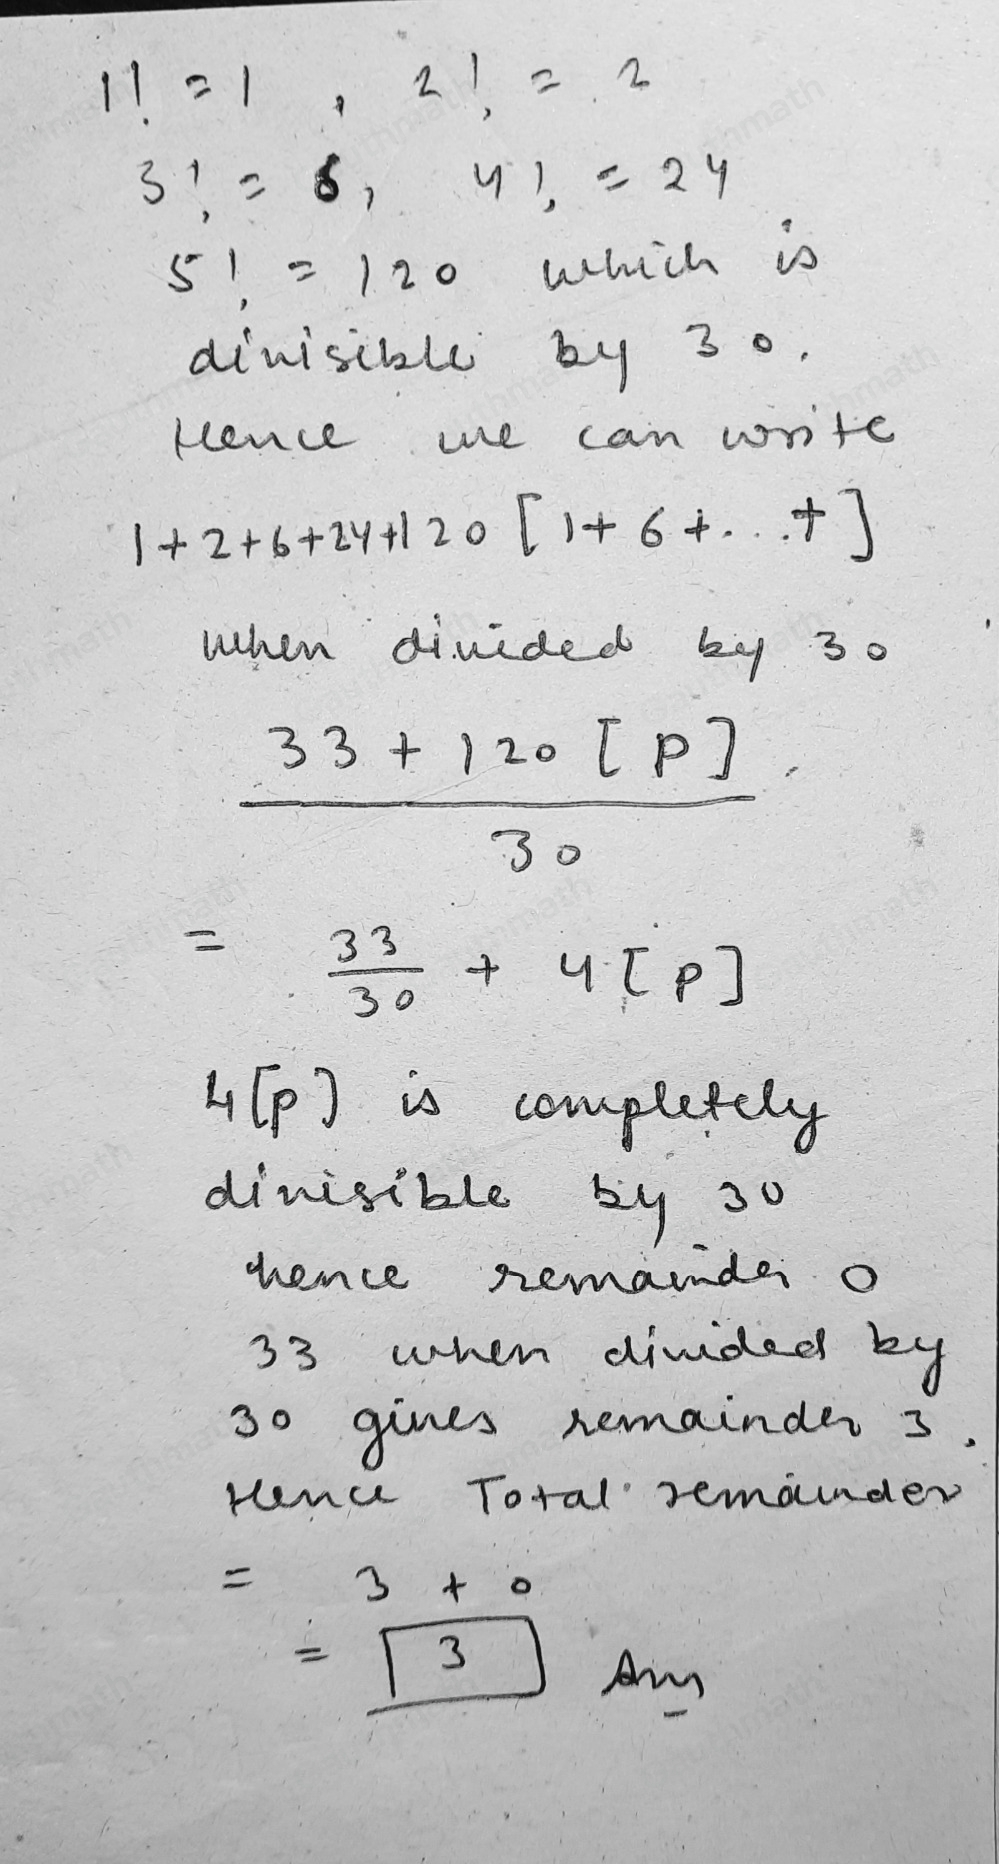 1! = 1 , 2! = 2
3! = 6, 4! = 24
5! = 120 which is
divisible by 30.
Hence we can write
1+2+6+24+120 [1+6+...+]
when divided by 30
33 + 120 [P]
30
= 33/30 + 4[P]
4[P] is completely
divisible by 30
hence remainder 0
33 when divided by
30 gives remainder 3.
Hence Total remainder
= 3 + 0
= 3 Ans